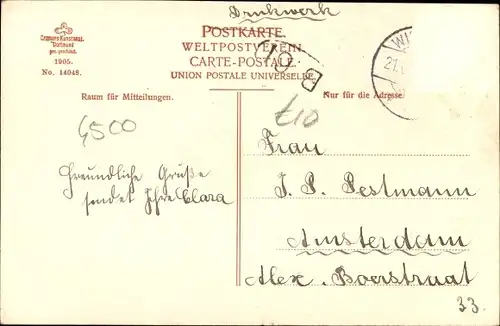 Drukwerk
Cramers Kunstanst.
Dortmund
ges. geschützt.
1905.
No. 14048.
POSTKARTE.
WELTPOSTVEREIN.
CARTE-POSTALE.
UNION POSTALE UNIVERSELLE.
Raum für Mitteilungen.
Nur für die Adresse.
4500
£10
Freundliche Grüße
sendet Ihre Clara
Frau
J. P. Pestmann
Amsterdam
Alex. Boerstraat
33.